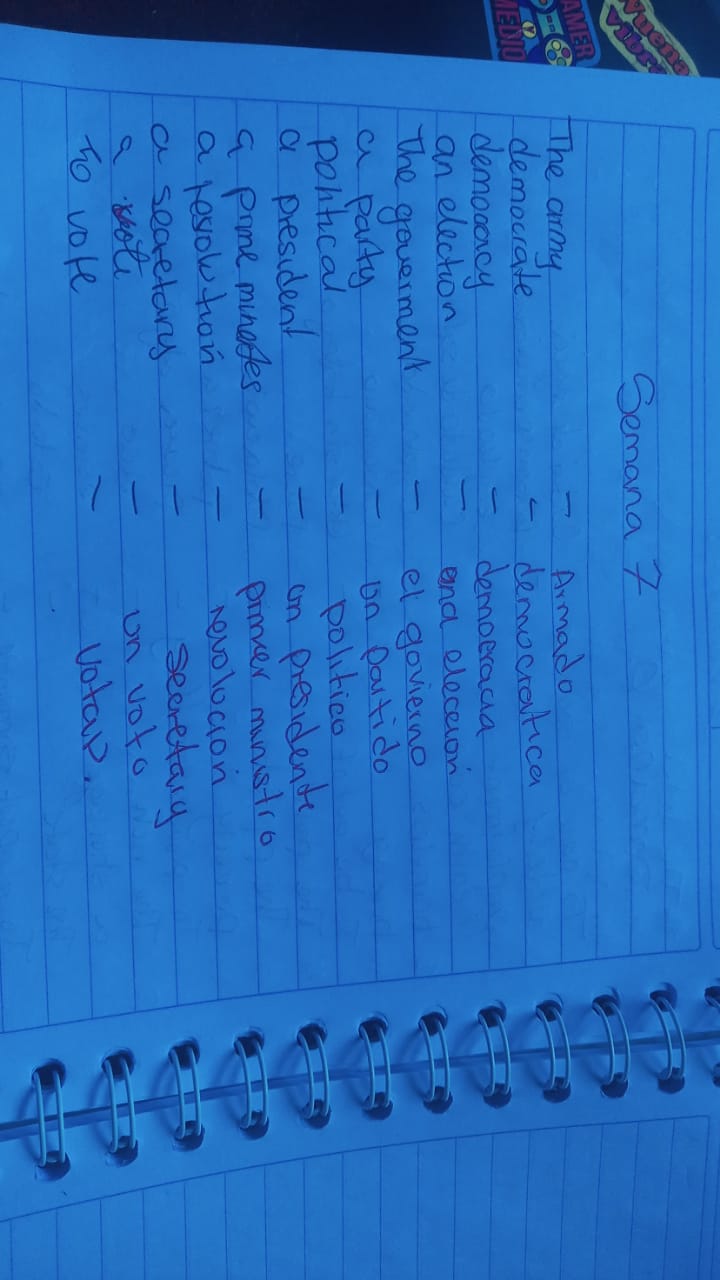 Semana 7
The army - Armado
democrate - democratica
democracy - democracia
an election - una eleccion
The goverment - el govierno
a party - un partido
political - politico
a president - un presidente
a prime minestes - primer ministro
a revolution - revolucion
a secretary - secretary
a vote - un voto
to vote - votar.
GAMER
MEDIO
Buena
Vibra